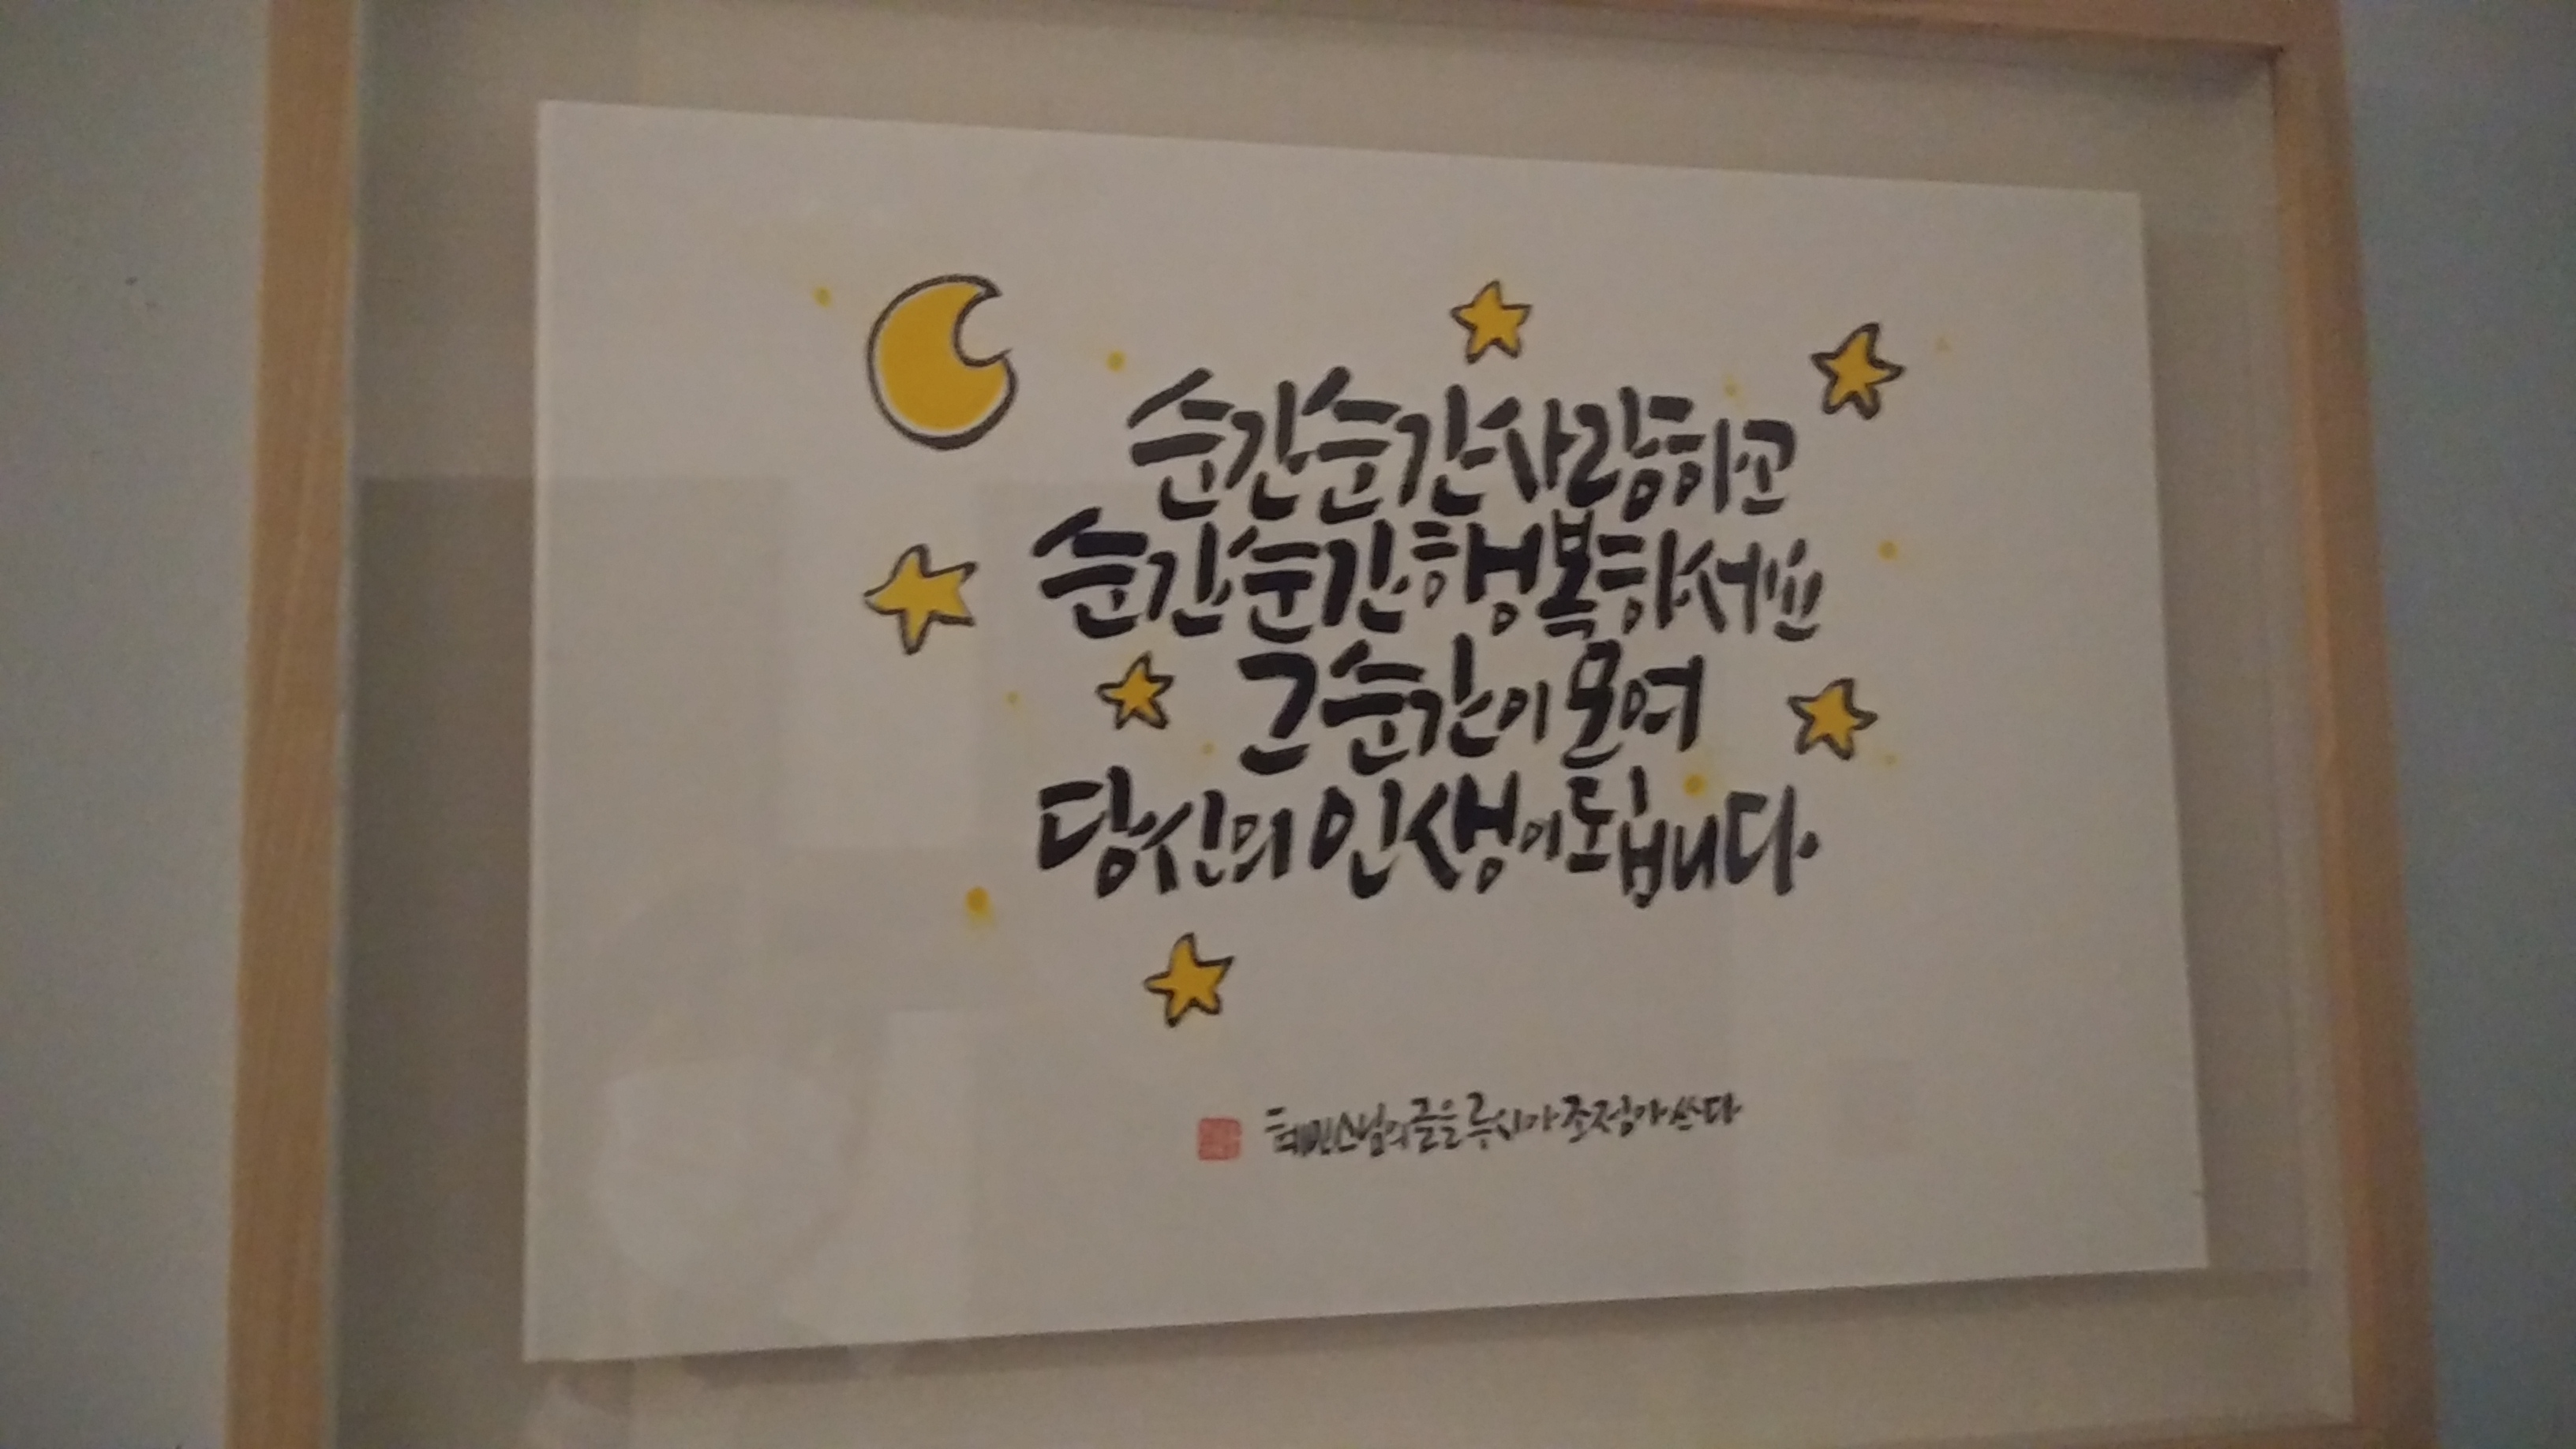 순간순간 사랑하고
순간순간 행복하세요
그 순간이 모여
당신의 인생이 됩니다.
혜민스님의 글을 루시아 조정아 쓰다